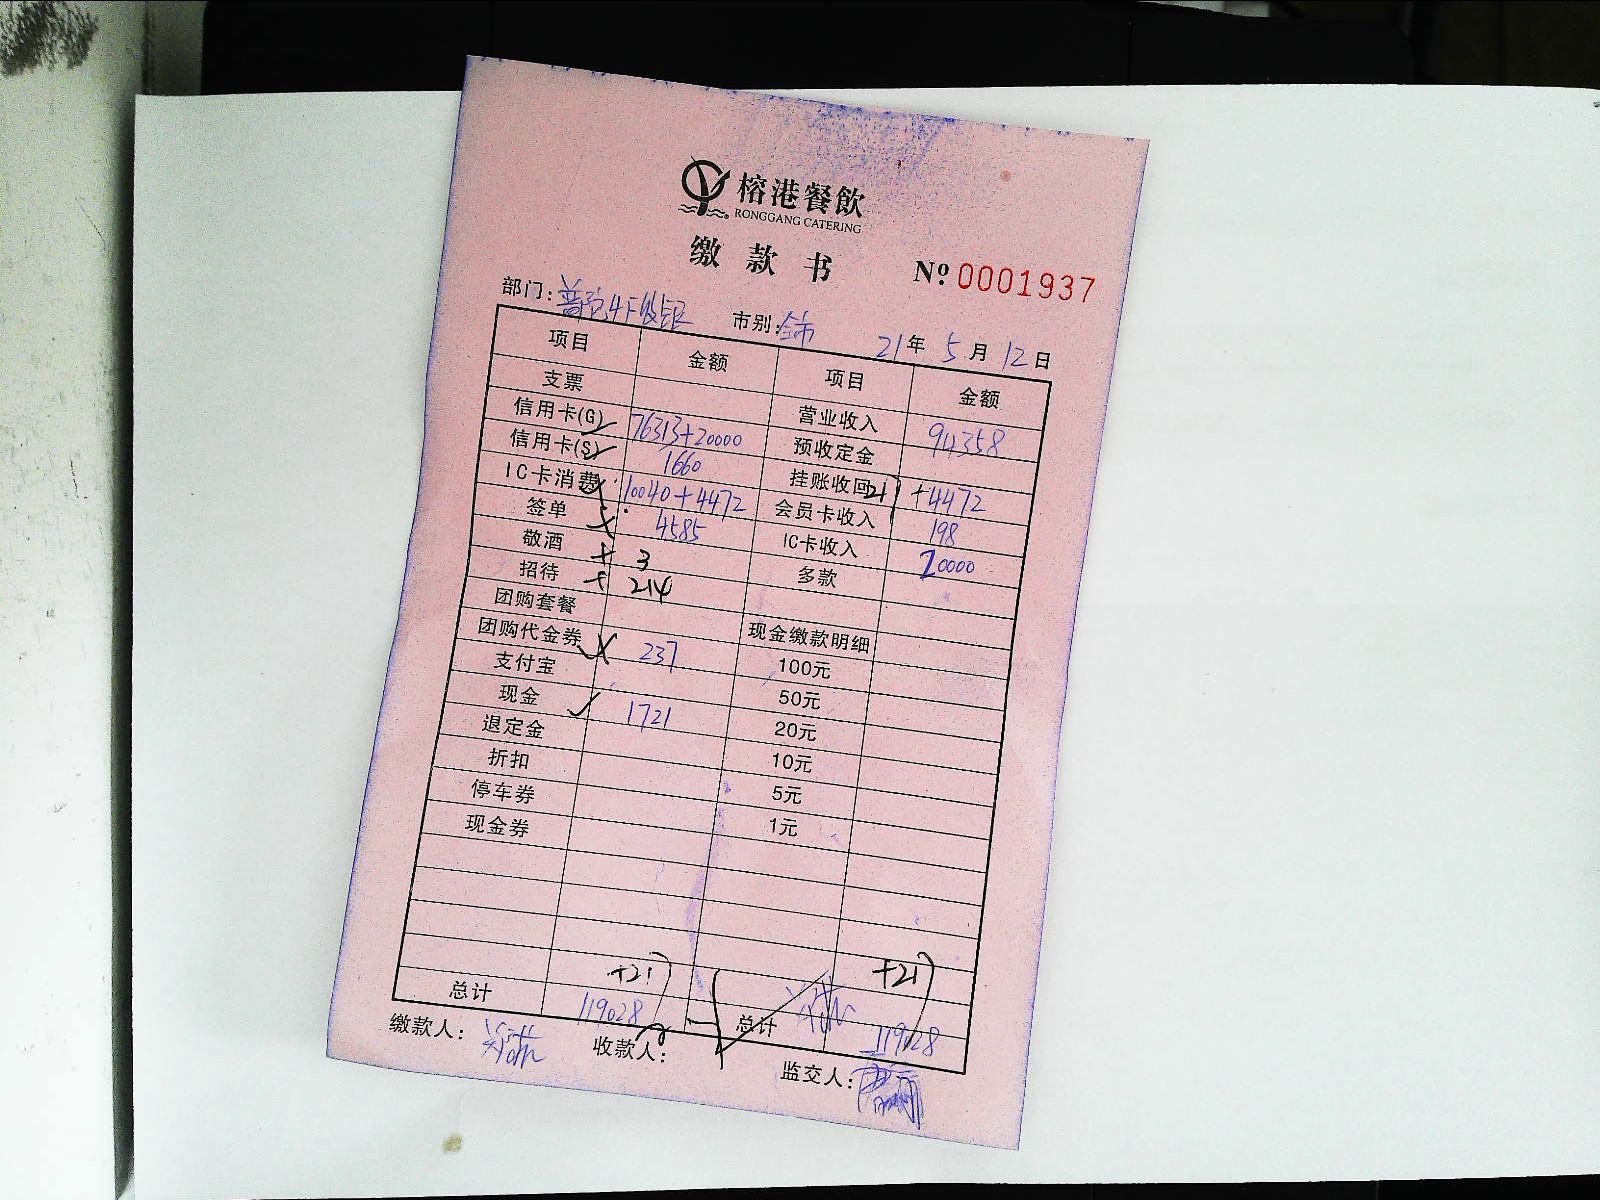 榕港餐飲
RONGGANG CATERING
缴款书 Nº 0001937
部门: 4F收银 市别: 全市 21年5月12日
项目 金额 项目 金额
支票 营业收入 94358
信用卡(G) 76313+20000 预收定金
信用卡(S) 1660 挂账收回 21 +4472
IC卡消费 10040+4472 会员卡收入 198
签单 4585 IC卡收入 20000
敬酒 3 多款
招待 214
团购套餐 现金缴款明细
团购代金券 237 100元
支付宝 50元
现金 1721 20元
退定金 10元
折扣 5元
停车券 1元
现金券
+21 +21
总计 119028 总计 119028
缴款人: 收款人: 监交人: